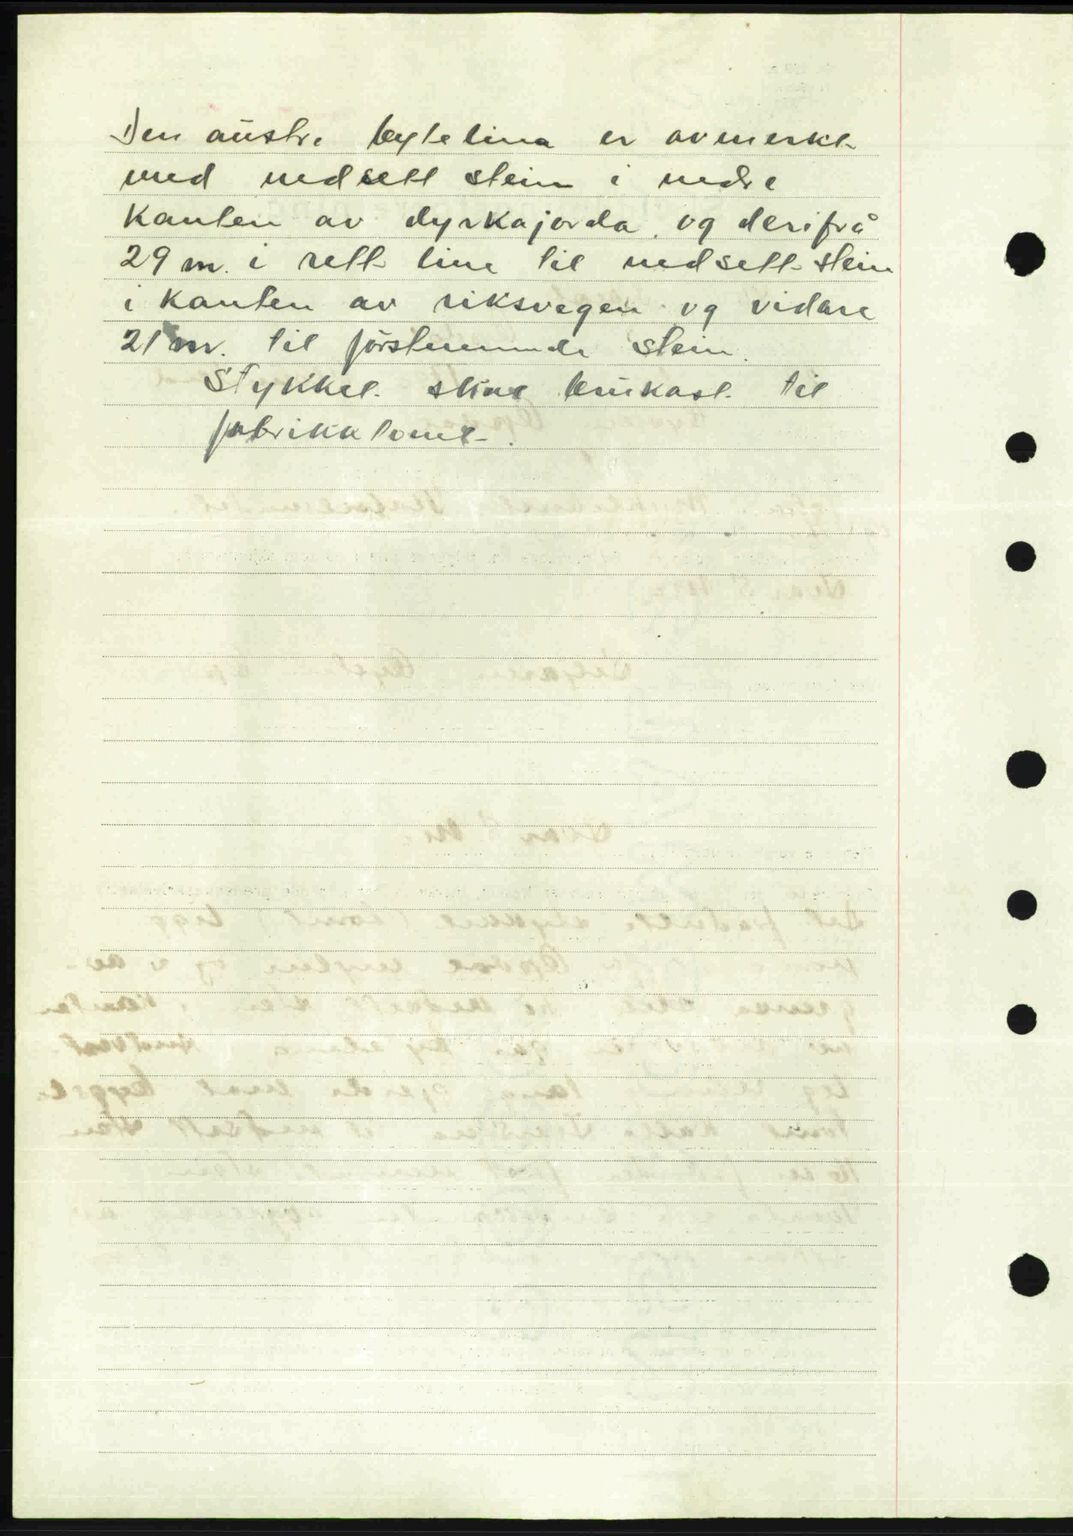 Den austre bytelina er avmerkt
med nedsett stein i nedre
kanten av dyrkajorda og derifrå
29 m. i rett line til nedsett stein
i kanten av riksvegen og vidare
21 m. til förstnemnde stein.
Stykket skal brukast til
fabrikktomt.